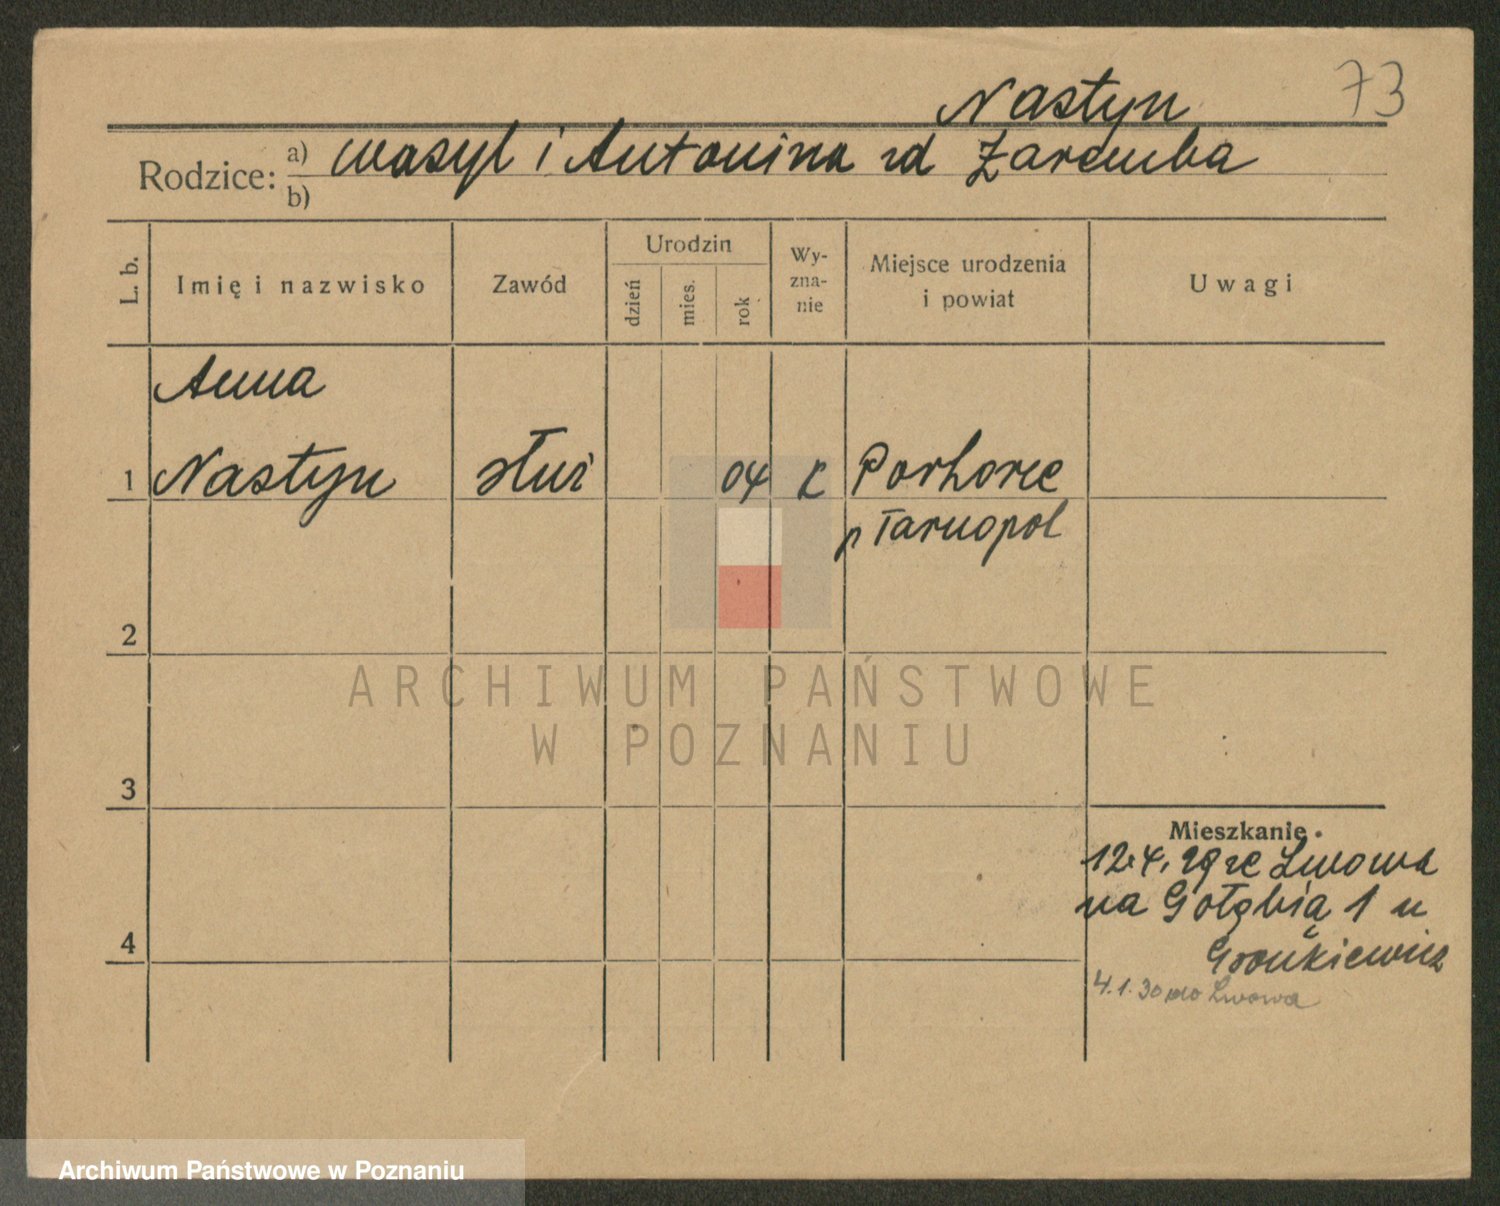 73
Nastyn
Rodzice: a) wasyl i Antonina zd Zaremba
b)
L. b. Imię i nazwisko Zawód Urodzin dzień mies. rok Wy-zna-nie Miejsce urodzenia i powiat Uwagi
Anna
1 Nastyn służ 04 k Porhorce
p Tarnopol
2
ARCHIWUM PAŃSTWOWE
W POZNANIU
3
Mieszkanie
12.4.29 ze Lwowa
na Gołębią 1 u
4
4.1.30 do Lwowa
Archiwum Państwowe w Poznaniu